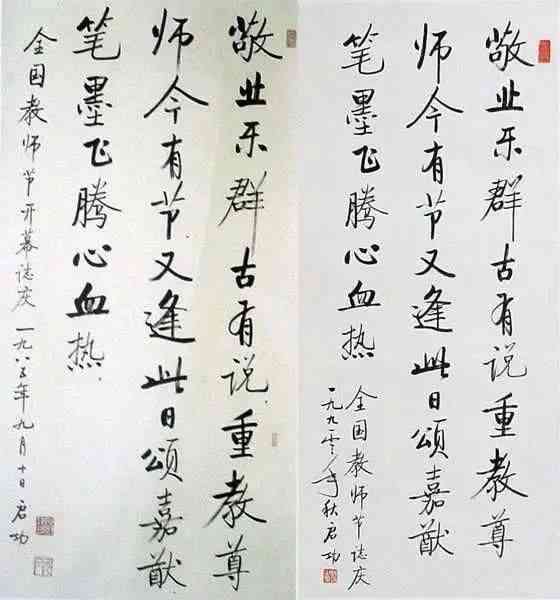 敬业乐群古有说重教尊
师今有节又逢此日颂嘉猷
笔墨飞腾心血热
全国教师节开幕誌庆 一九八五年九月十日 启功
敬业乐群古有说重教尊
师今有节又逢此日颂嘉猷
笔墨飞腾心血热
全国教师节誌庆
一九九〇年秋启功